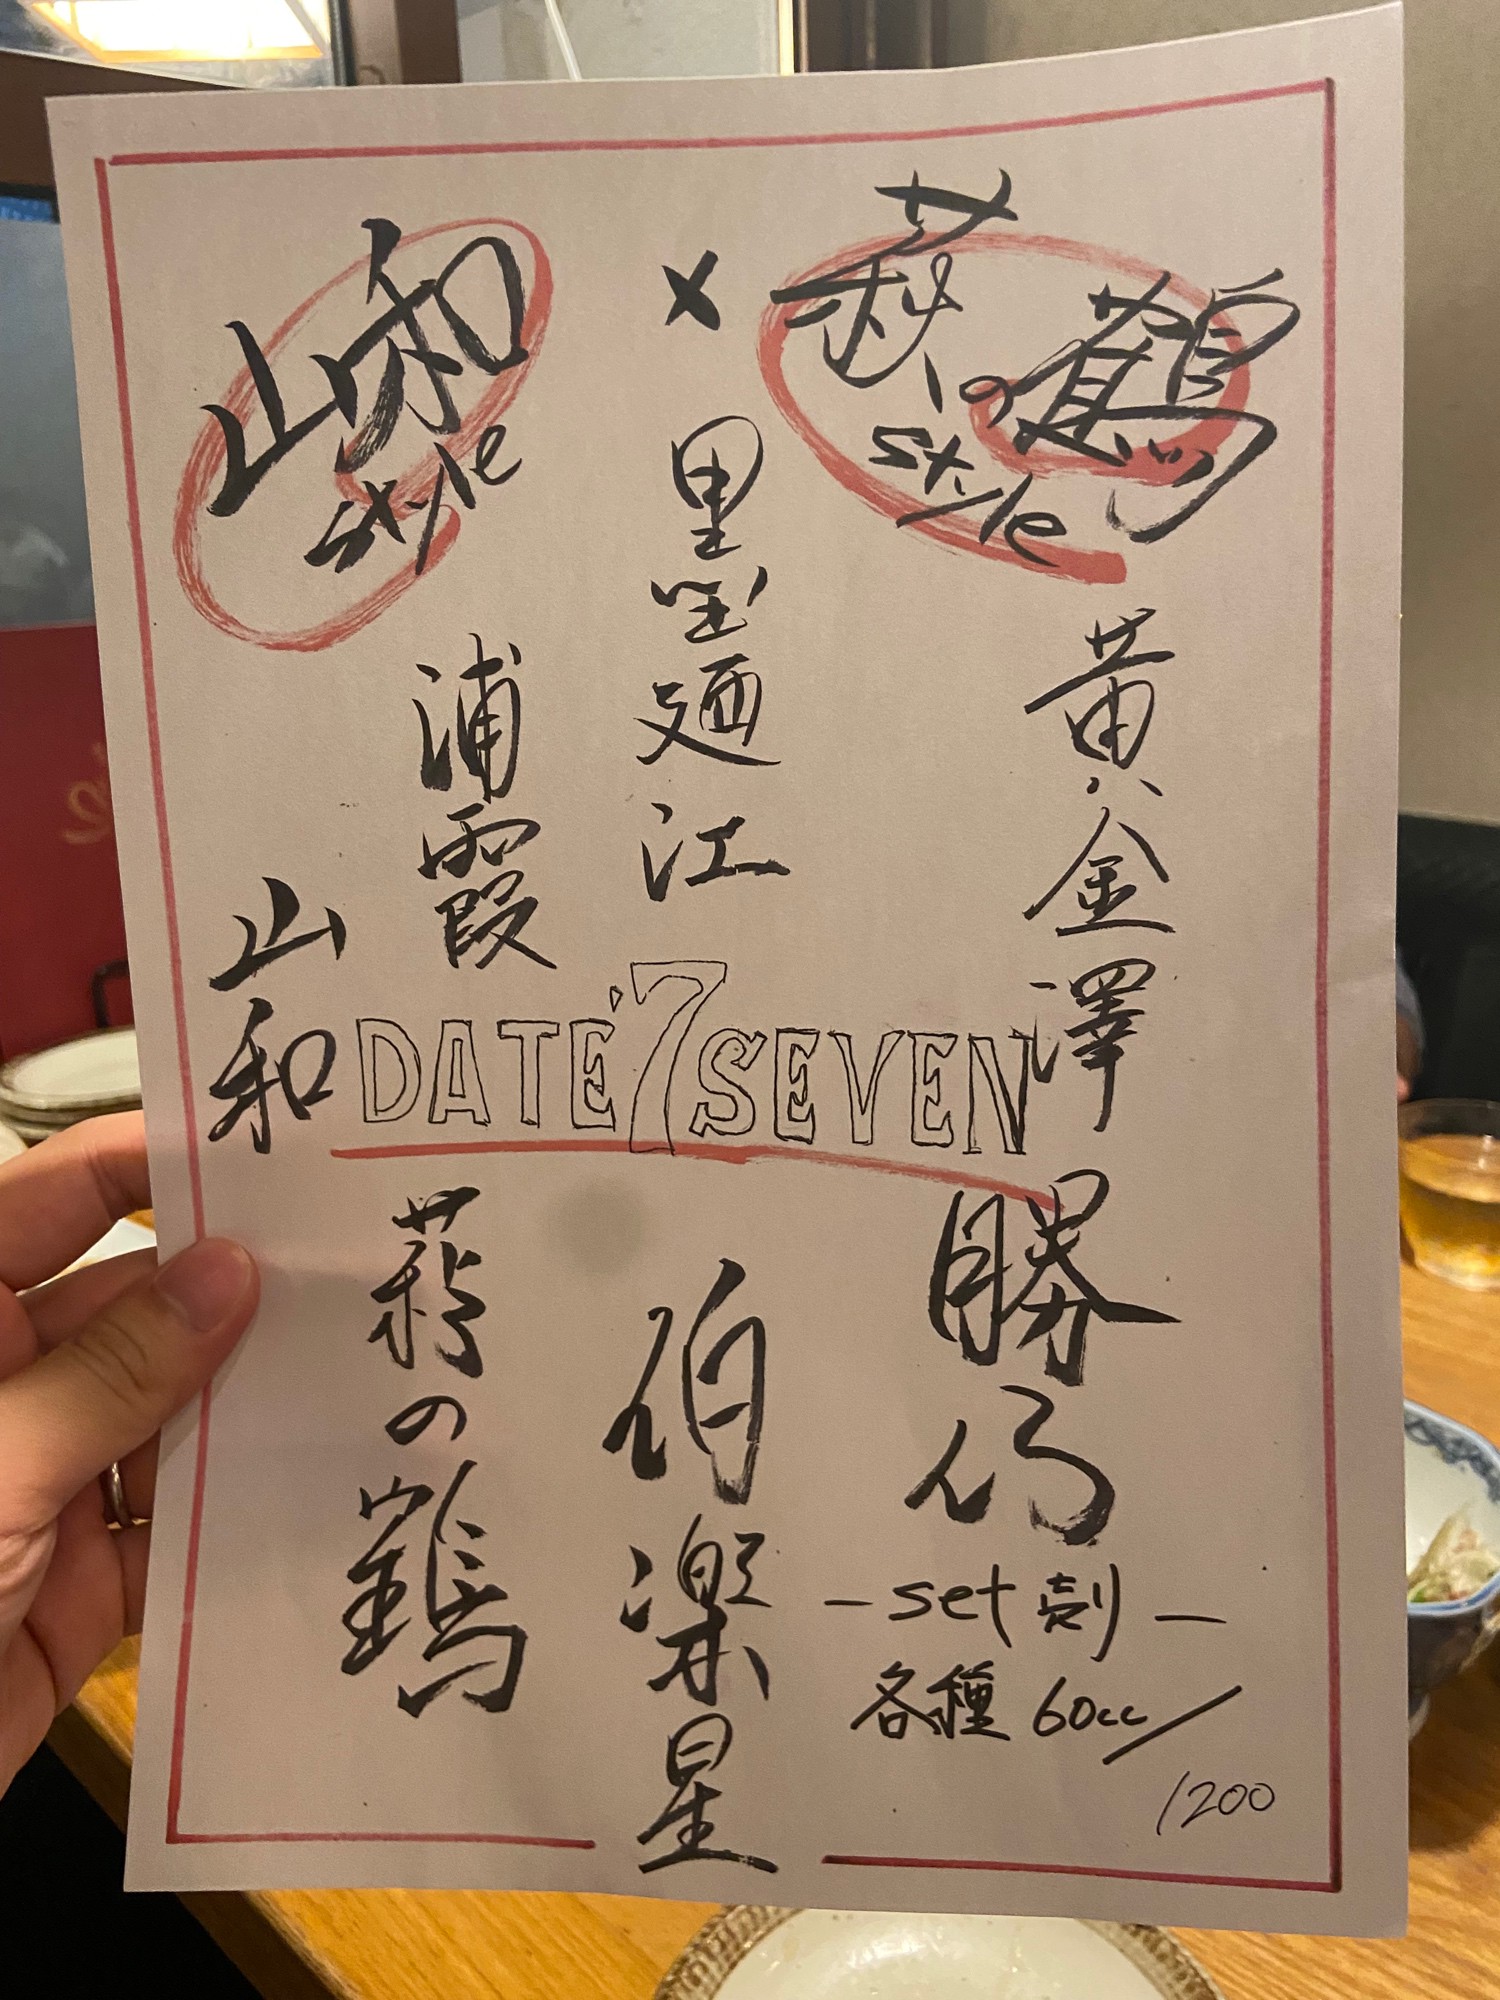 山和 style
×
萩の鶴 style
黄金澤
墨廼江
浦霞
山和
DATE 7 SEVEN
勝山
伯楽星
萩の鶴
- set 売り -
各種 60cc
1200